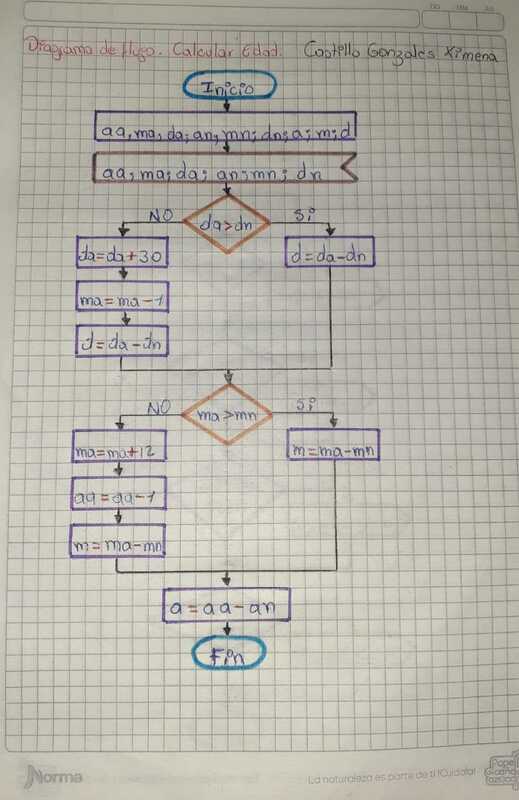 Diagrama de flujo. Calcular Edad. Castillo Gonzales Ximena
Inicio
aa, ma, da; an, mn; dn; a; m; d
aa; ma; da; an; mn; dn
NO
da>dn
Si
da=da+30
d=da-dn
ma=ma-1
d=da-dn
NO
ma>mn
Si
ma=ma+12
m=ma-mn
aa=aa-1
m=ma-mn
a=aa-an
Fin
Norma
La naturaleza es parte de ti !Cuídala!